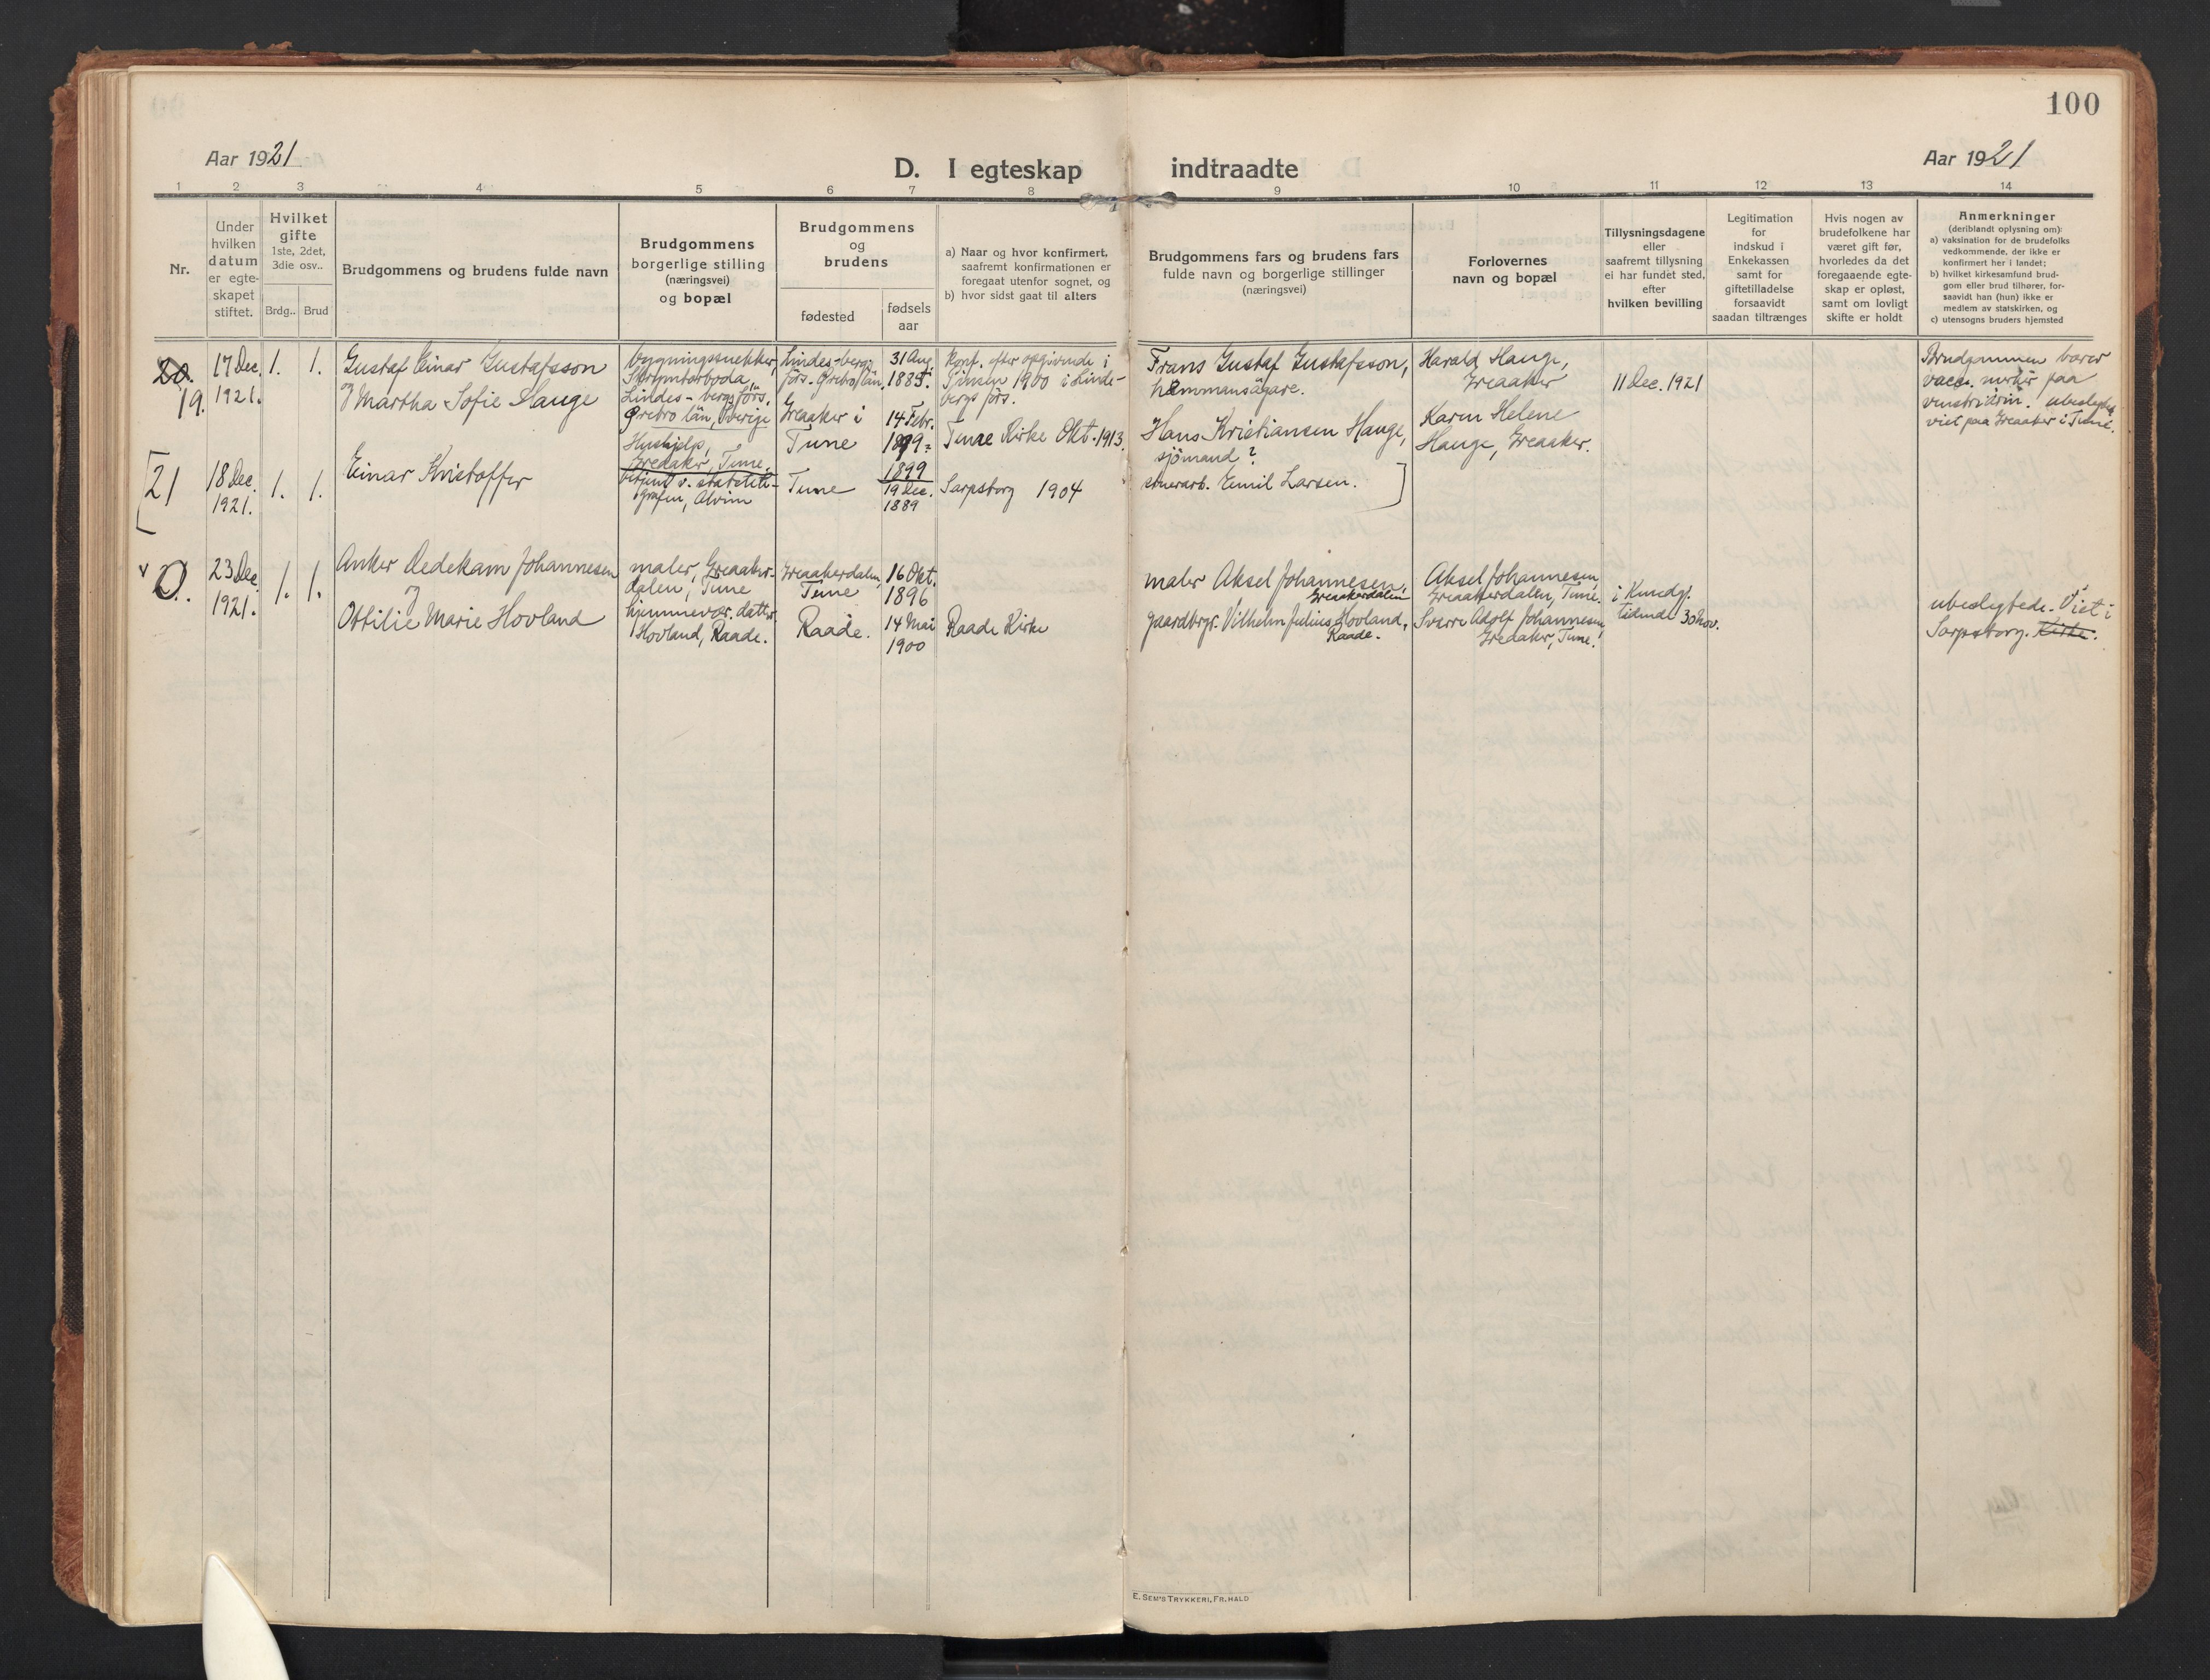 100
Aar 1921
D. I egteskap indtraadte
Aar 1921
1 2 3 4 5 6 7 8 9 10 11 12 13 14
Nr.
Under
hvilken
datum
er egte-
skapet
stiftet.
Hvilket
gifte
1ste, 2det,
3die osv..
Brdg.. Brud
Brudgommens og brudens fulde navn
Brudgommens
borgerlige stilling
(næringsvei)
og bopæl
Brudgommens
og
brudens
fødested
fødsels
aar
a) Naar og hvor konfirmert,
saafremt konfirmationen er
foregaat utenfor sognet, og
b) hvor sidst gaat til alters
Brudgommens fars og brudens fars
fulde navn og borgerlige stillinger
(næringsvei)
Forlovernes
navn og bopæl
Tillysningsdagene
eller
saafremt tillysning
ei har fundet sted,
efter
hvilken bevilling
Legitimation
for
indskud i
Enkekassen
samt for
giftetilladelse
forsaavidt
saadan tiltrænges
Hvis nogen av
brudefolkene har
været gift før,
hvorledes da det
foregaaende egte-
skap er opløst,
samt om lovligt
skifte er holdt
Anmerkninger
(deriblandt oplysning om):
a) vaksination for de brudefolks
vedkommende, der ikke er
konfirmert her i landet;
b) hvilket kirkesamfund brud-
gom eller brud tilhører, for-
saavidt han (hun) ikke er
medlem av statskirken, og
c) utensogns bruders hjemsted
20.
19.
17 Dec.
1921.
1. 1.
Gustaf Einar Gustafsson
og Martha Sofie Hauge
bygningssnekker,
Lindes-bergs förs.
Örebro län, Sverige
Hushjelp,
Greaaker, Tune.
Lindes-bergs
förs. Örebro län
Greaaker i
Tune
31 Aug.
1885.
14 Febr.
1899
1899
Konf. efter opgivende i
1900 i Linde-
bergs förs.
Tune Kirke Okt. 1913.
Frans Gustaf Gustafsson,
hemmansägare.
Hans Kristiansen Hauge,
sjömand?
Harald Hauge,
Greaaker
Karen Helene
Hauge, Greaaker.
11 Dec. 1921
Brudgommen bærer
vacc. merker paa
venstre arm. ubeslegtet
viet paa Greaaker i Tune.
[21
18 Dec.
1921.
1. 1.
Einar Kristoffer
betjent v. statstele-
grafen, Alvim
Tune
19 Dec.
1889
Sarpsborg 1904
Emil Larsen. ]
v 0.
23 Dec.
1921.
1. 1.
Anker Dedekam Johannesen
og
Ottilie Marie Hovland
maler, Greaaker-
dalen, Tune
hjemmevær. datter
Hovland, Raade.
Greaakerdalen,
Tune
Raade.
16 Okt.
1896
14 Mai
1900
Raade Kirke
maler Aksel Johannesen,
Greaakerdalen
gaardbrgr. Vilhelm Julius Hovland,
Raade.
Aksel Johannesen,
Greaakerdalen, Tune.
Sverre Adolf Johannesen,
Greaaker, Tune.
i Kundgj.
tidende 30 Nov.
ubeslegtede. Viet i
Sarpsborg. Kirke.
E. SEM'S TRYKKERI, FR.HALD